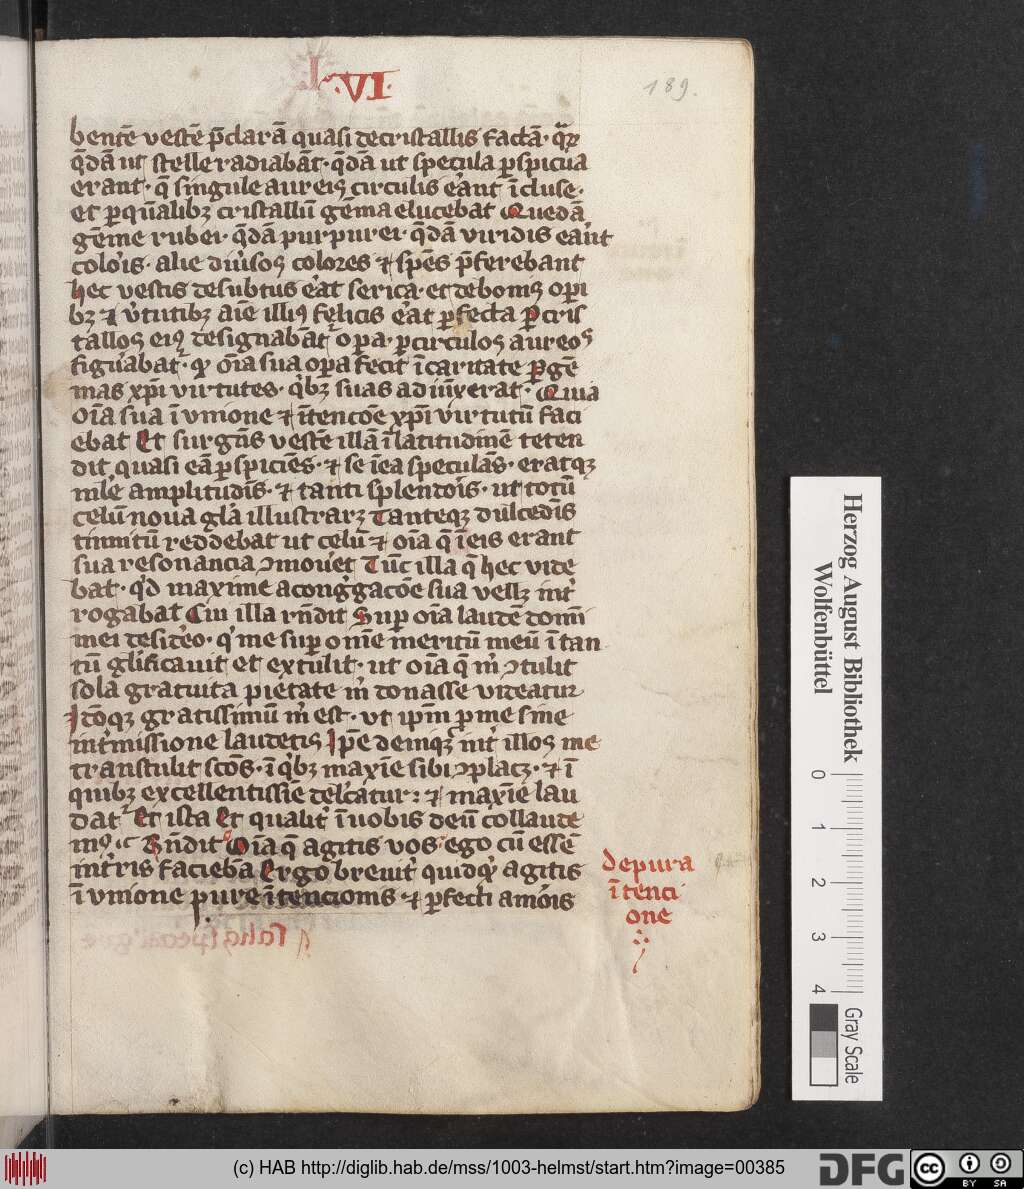 L·VI·
189.
bentē vestē p̄clarā quasi de cristallis factā·
q̄dā ut stelle radiabāt· q̄dā ut specula ꝑspicua
erant· q̄ singule aureis circulis erant īcluse·
et ꝑ qualibꝫ cristallū gēma elucebat Quedā
gēme rubei· q̄dā purpurei· q̄dā viridis erant
coloris· alie diuisoꝝ colores ⁊ spēs p̄ferebant
hec vestis desubtus erat serica· et de bonis oꝑi
bꝫ ⁊ v̓tutibꝫ aīe illius felicis erat ꝑfecta ꝑ cris
talloꝝ eius designabāt oꝑa· ꝑ circulos aureos
figurabat· ꝙ oīa sua oꝑa fecit ī caritate ꝑ gē
mas xp̄i virtutes· qͥbꝫ suas adiūxerat· Quia
oīa sua ī vnione ⁊ ītencōe xp̄i virtutū faci
ebat Et surgēs vestē illā ī latitudinē teten
dit quasi eā ꝑspiciēs· ⁊ se ī ea speculās· eratqꝫ
mīe amplitudīs· ⁊ tanti splendoīs· ut totū
celū noua gl̄a illustraꝝ Tanteqꝫ dulcedīs
tinnitū reddebat ut celū ⁊ oīa q̄ ī eis erant
sua resonancia ꝯmouet Tūc illa q̄ hec vide
bat· qͥd maxime a cong̓gacōe sua vellꝫ int̓
rogabat Cui illa rn̄dit Suꝑ oīa laudē domī
mei desid̓eo· qͥ me suꝑ omē meritū meū ī tan
tū gl̄ificauit et extulit· ut oīa q̄ m̓ ꝯtulit
sola gratuita pietate m̓ donasse videatur
Idēqꝫ gratissimū m̓ est· vt ip̄m ꝑ me sine
int̓missione laudetis Ip̄e deniqꝫ int̓ illos me
transtulit scōs· ī qͥbꝫ maxīe sibi ꝯplacꝫ· ⁊ ī
quibꝫ excellentissīe delc̄atur: ⁊ maxīe lau
dat̓ Et ista Et qualit̓ ī uobis deū collaude
mꝰ Rn̄dit Oīa q̄ agitis vos ego cū essē
int̓ris faciebā Ergo breuit̓ quidqͥ agitis
ī vnione pure ītencionis ⁊ ꝑfecti amoīs
de pura
ītenci
one
Herzog August Bibliothek
Wolfenbüttel
0 1 2 3 4
Gray Scale
(c) HAB http://diglib.hab.de/mss/1003-helmst/start.htm?image=00385
DFG
cc
BY SA